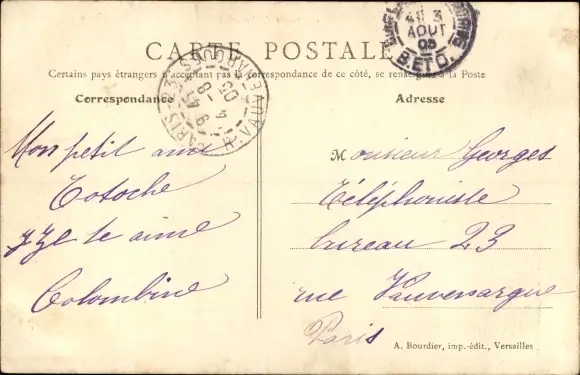 CARTE POSTALE
Certains pays étrangers n'acceptant pas la correspondance de ce côté, se renseigner à la Poste
Correspondance
Mon petit ami
Totoche
je te aime
Colombine
Adresse
Monsieur Georges
Téléphoniste
bureau 23
rue Vauvenargue
Paris
A. Bourdier, imp.-édit., Versailles
3
AOUT
05
PARIS
R. VAUVENARGUES